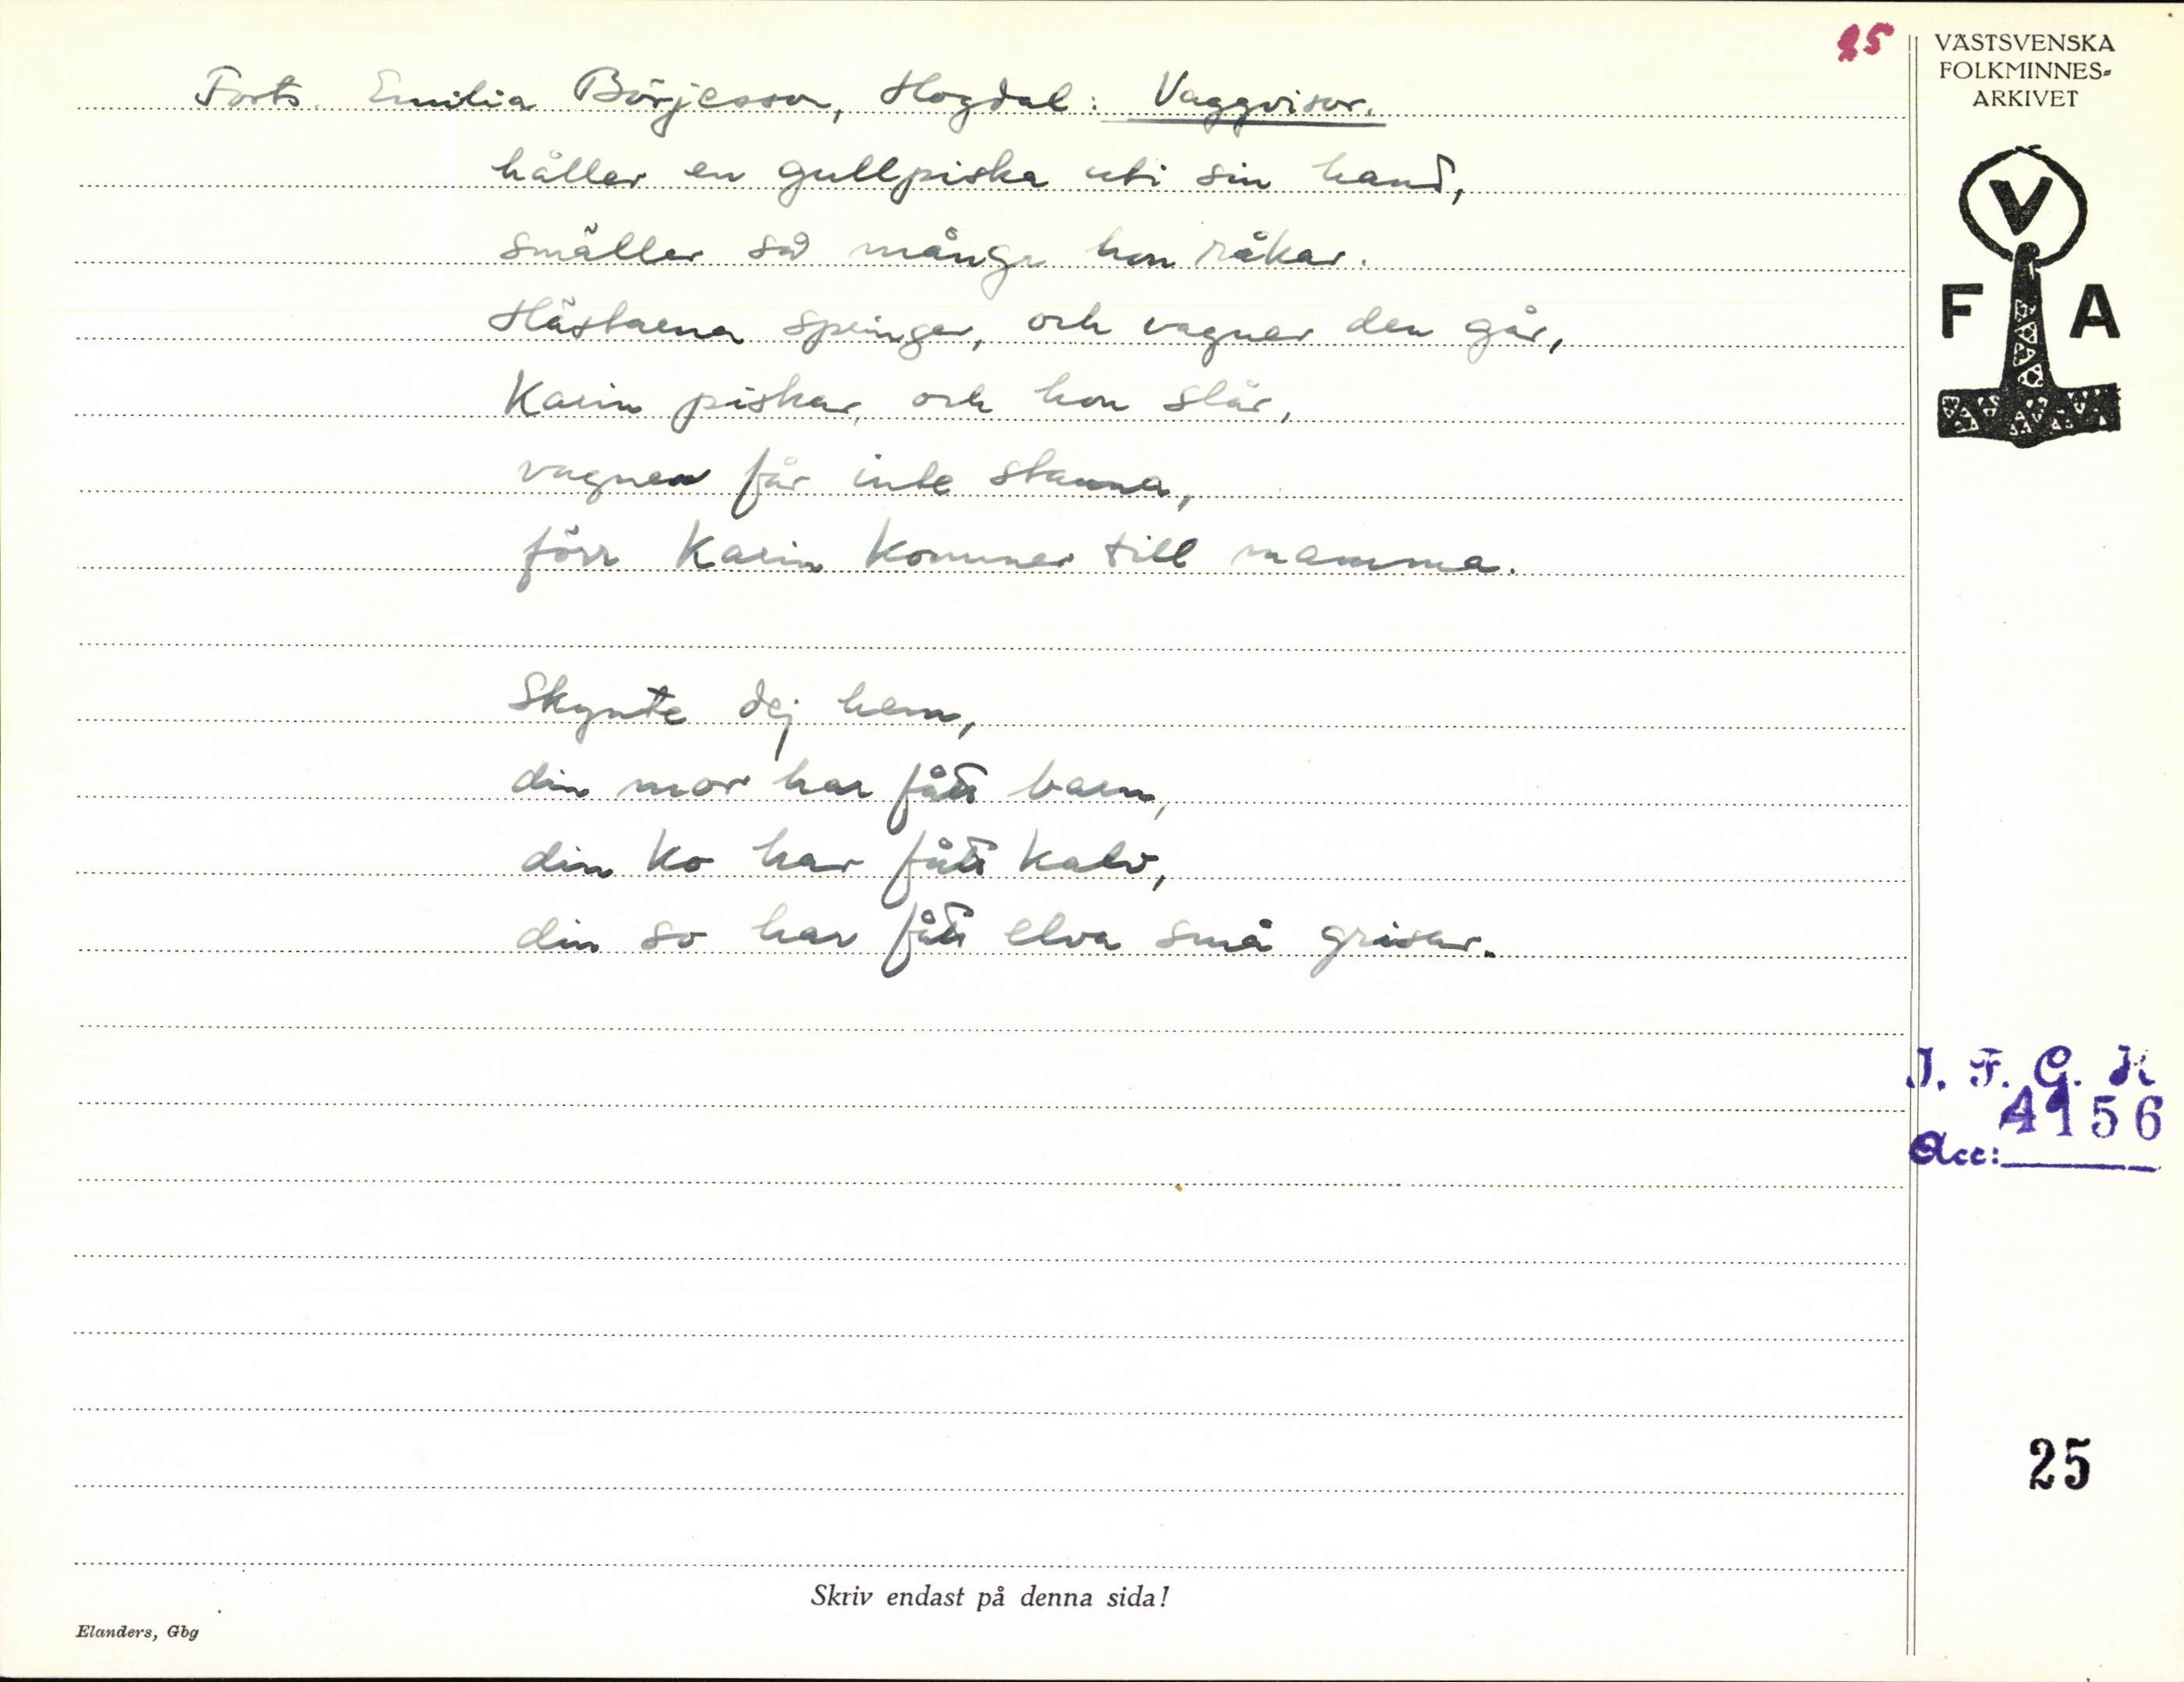 25
Forts. Emilia Börjesson, Hogdal: Vaggvisor.
håller en gullpiska uti sin hand,
smäller så många hon råkar.
Hästarna springer, och vagnen den går,
Karin piskar, och hon slår,
vagnen får inte stanna,
förr Karin kommer till mamma.
Skynte dej hem,
din mor har fått barn,
din ko har fått kalv,
din so har fått elva små grisar.
VÄSTSVENSKA
FOLKMINNES=
ARKIVET
V
F A
I. F. G. H
4156
Acc:
25
Skriv endast på denna sida!
Elanders, Gbg